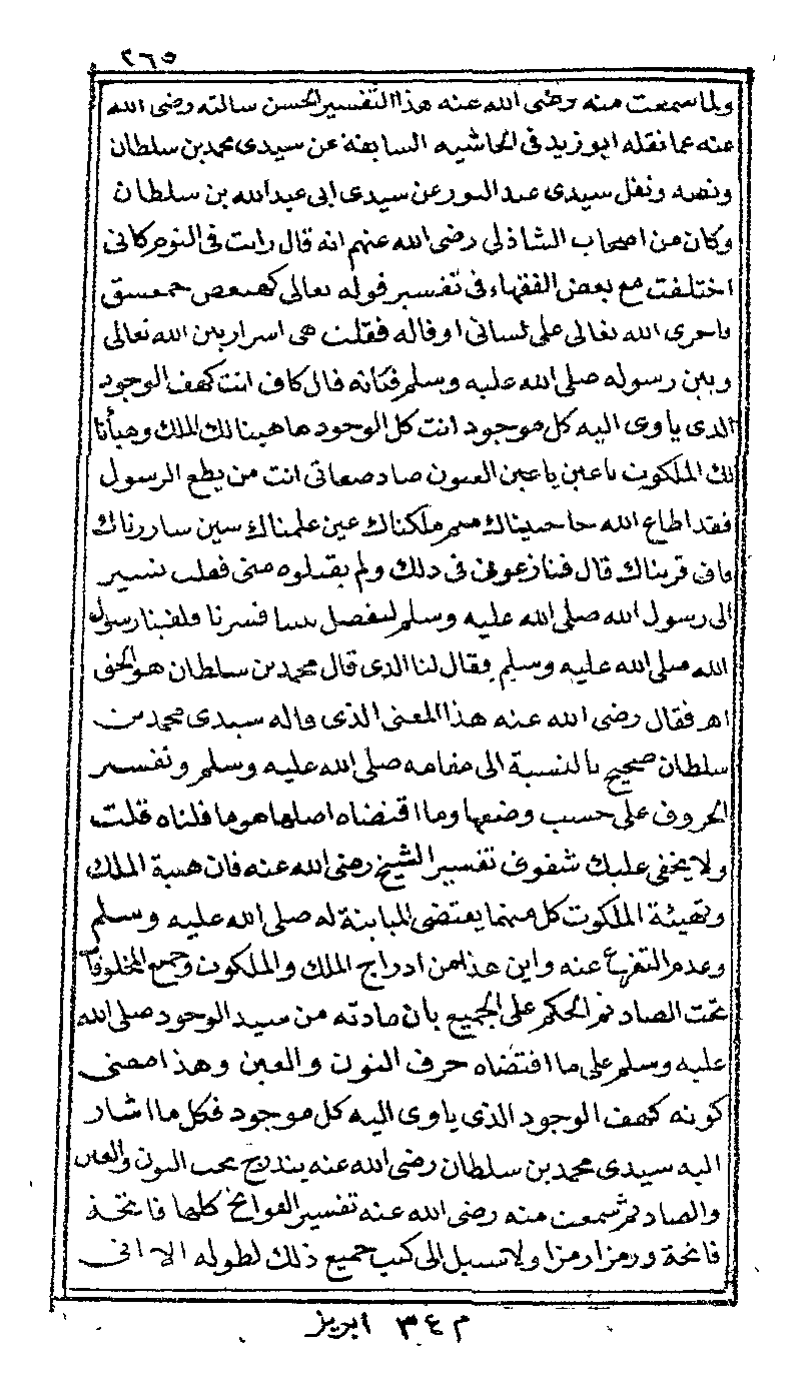 ٢٦٥
ولما سمعت منه رضى الله عنه هذا التفسير الحسن سالته رضى الله
عنه عما نقله ابو زيد فى الحاشيه السابقة عن سيدى محمد بن سلطان
ونصه ونقل سيدى عبد النور عن سيدى ابى عبد الله بن سلطان
وكان من اصحاب الشاذلى رضى الله عنهم انه قال رايت فى النوم كانى
اختلفت مع بعض الفقهاء فى تفسير قوله تعالى كهيعص حمعسق
فاجرى الله تعالى على لسانى او قاله فقلت هى اسرار بين الله تعالى
وبين رسوله صلى الله عليه وسلم فكانه قال كاف انت كهف الوجود
الذى ياوى اليه كل موجود انت كل الوجود ها هيبنا لك الملك وهيأنا
لك الملكوت يا عين يا عين العيون صاد صفاتى انت من يطع الرسول
فقد اطاع الله حا حميناك ميم ملكناك عين علمناك سين ساررناك
قاف قربناك قال فنازعونى فى ذلك ولم يقبلوه منى فقلت نسير
الى رسول الله صلى الله عليه وسلم ليفصل بيننا فسرنا فلقينا رسول
الله صلى الله عليه وسلم فقال لنا الذى قال محمد بن سلطان هو الحق
اهـ فقال رضى الله عنه هذا المعنى الذى قاله سيدى محمد بن
سلطان صحيح بالنسبة الى مقامه صلى الله عليه وسلم وتفسير
الحروف على حسب وضعها وما اقتضاه اصلها هو ما قلناه قلت
ولا يخفى عليك شفوف تفسير الشيخ رضى الله عنه فان هبة الملك
وتهيئة الملكوت كل منهما يقتضى المباينة له صلى الله عليه وسلم
وعدم التفرع عنه واين هذا من ادراج الملك والملكوت وجميع المخلوقات
تحت الصاد ثم الحكم على الجميع بان مادته من سيد الوجود صلى الله
عليه وسلم على ما اقتضاه حرف النون والعين وهذا معنى
كونه كهف الوجود الذى ياوى اليه كل موجود فكل ما اشار
اليه سيدى محمد بن سلطان رضى الله عنه يندرج تحت النون والعين
والصاد ثم سمعت منه رضى الله عنه تفسير الفواتح كلها فاتحة
فاتحة ورمزا رمزا ولا سبيل الى كتب جميع ذلك لطوله الا انى
م ٣٤ ابريز